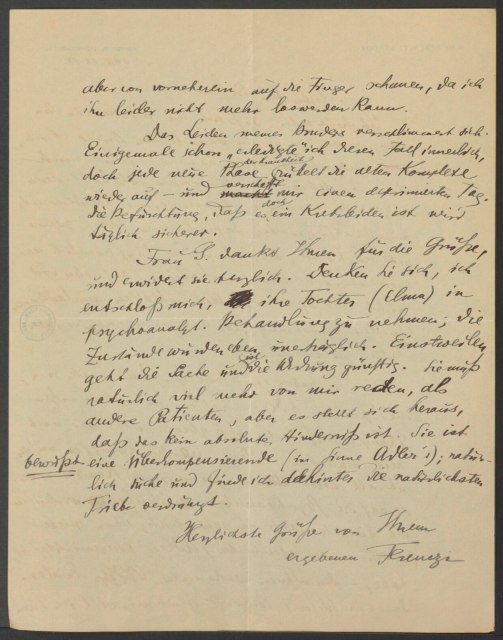 aber von vorneherein auf die Finger schauen, da ich
ihn leider nicht mehr loswerden kann.
Das Leiden meines Bruders verschlimmert sich.
Einigemale schon „erledigte" ich diesen Fall innerlich,
doch jede neue Phase der Krankheit rüttelt die alten Komplexe
wieder auf – und macht verschafft mir einen deprimierten Tag.
die Befürchtung, daß es doch ein Krebsleiden ist wird
täglich sicherer.
Frau G. dankt Ihnen für die Grüße,
und erwidert sie herzlich. Denken Sie sich, ich
entschloß mich, ihre Tochter (Elma) in
psychoanalyt. Behandlung zu nehmen; die
Zustände wurden eben unerträglich. Einstweilen
geht die Sache und ist die Wirkung günstig. Sie muß
natürlich viel mehr von mir reden, als
andere Patienten, aber es stellt sich heraus,
daß das kein absolutes Hinderniß ist. Sie ist
bewußt eine Überkompensierende (im Sinne Adler's); natür-
lich suche und finde ich dahinter die natürlichsten
Triebe verdrängt.
Herzlichste Grüße von Ihrem
ergebenen Ferenczi